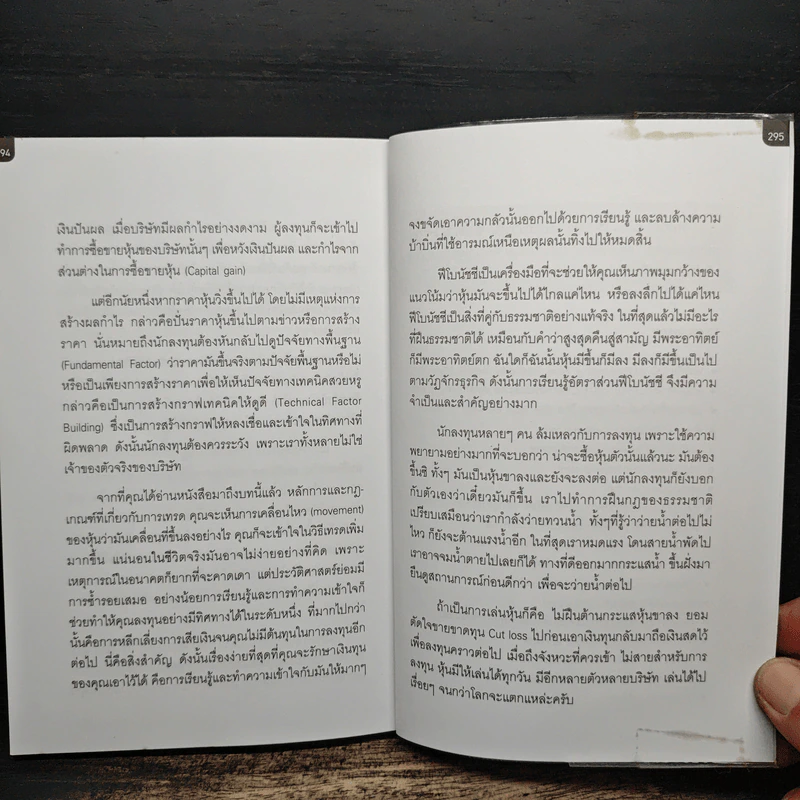 94
เงินปันผล เมื่อบริษัทมีผลกำไรอย่างงดงาม ผู้ลงทุนก็จะเข้าไป
ทำการซื้อขายหุ้นของบริษัทนั้นๆ เพื่อหวังเงินปันผล และกำไรจาก
ส่วนต่างในการซื้อขายหุ้น (Capital gain)
แต่อีกนัยหนึ่งหากราคาหุ้นวิ่งขึ้นไปได้ โดยไม่มีเหตุแห่งการ
สร้างผลกำไร กล่าวคือปั่นราคาหุ้นขึ้นไปตามข่าวหรือการสร้าง
ราคา นั่นหมายถึงนักลงทุนต้องหันกลับไปดูปัจจัยทางพื้นฐาน
(Fundamental Factor) ว่าราคามันขึ้นจริงตามปัจจัยพื้นฐานหรือไม่
หรือเป็นเพียงการสร้างราคาเพื่อให้เห็นปัจจัยทางเทคนิคสวยหรู
กล่าวคือเป็นการสร้างกราฟเทคนิคให้ดูดี (Technical Factor
Building) ซึ่งเป็นการสร้างกราฟให้หลงเชื่อและเข้าใจในทิศทางที่
ผิดพลาด ดังนั้นนักลงทุนต้องควรระวัง เพราะเราทั้งหลายไม่ใช่
เจ้าของตัวจริงของบริษัท
จากที่คุณได้อ่านหนังสือมาถึงบทนี้แล้ว หลักการและกฎ-
เกณฑ์ที่เกี่ยวกับการเทรด คุณจะเห็นการเคลื่อนไหว (movement)
ของหุ้นว่ามันเคลื่อนที่ขึ้นลงอย่างไร คุณก็จะเข้าใจในวิธีเทรดเพิ่ม
มากขึ้น แน่นอนในชีวิตจริงมันอาจไม่ง่ายอย่างที่คิด เพราะ
เหตุการณ์ในอนาคตก็ยากที่จะคาดเดา แต่ประวัติศาสตร์ย่อมมี
การซ้ำรอยเสมอ อย่างน้อยการเรียนรู้และการทำความเข้าใจก็
ช่วยทำให้คุณลงทุนอย่างมีทิศทางได้ในระดับหนึ่ง ที่มากไปกว่า
นั้นคือการหลีกเลี่ยงการเสียเงินจนคุณไม่มีต้นทุนในการลงทุนอีก
ต่อไป นี่คือสิ่งสำคัญ ดังนั้นเรื่องง่ายที่สุดที่คุณจะรักษาเงินทุน
ของคุณเอาไว้ได้ คือการเรียนรู้และทำความเข้าใจกับมันให้มากๆ
295
จงขจัดเอาความกลัวนั้นออกไปด้วยการเรียนรู้ และลบล้างความ
บ้าบิ่นที่ใช้อารมณ์เหนือเหตุผลนั้นทิ้งไปให้หมดสิ้น
ฟีโบนัชชีเป็นเครื่องมือที่จะช่วยให้คุณเห็นภาพมุมกว้างของ
แนวโน้มว่าหุ้นมันจะขึ้นไปได้ไกลแค่ไหน หรือลงลึกไปได้แค่ไหน
ฟีโบนัชชีเป็นสิ่งที่คู่กับธรรมชาติอย่างแท้จริง ในที่สุดแล้วไม่มีอะไร
ที่ฝืนธรรมชาติได้ เหมือนกับคำว่าสูงสุดคืนสู่สามัญ มีพระอาทิตย์
ก็มีพระอาทิตย์ตก ฉันใดก็ฉันนั้นหุ้นมีขึ้นก็มีลง มีลงก็มีขึ้นเป็นไป
ตามวัฏจักรธุรกิจ ดังนั้นการเรียนรู้อัตราส่วนฟีโบนัชชี จึงมีความ
จำเป็นและสำคัญอย่างมาก
นักลงทุนหลายๆ คน ล้มเหลวกับการลงทุน เพราะใช้ความ
พยายามอย่างมากที่จะบอกว่า น่าจะซื้อหุ้นตัวนั้นแล้วนะ มันต้อง
ขึ้นซิ ทั้งๆ มันเป็นหุ้นขาลงและยังจะลงต่อ แต่นักลงทุนก็ยังบอก
กับตัวเองว่าเดี๋ยวมันก็ขึ้น เราไปทำการฝืนกฎของธรรมชาติ
เปรียบเสมือนว่าเรากำลังว่ายทวนน้ำ ทั้งๆที่รู้ว่าว่ายน้ำต่อไปไม่
ไหว ก็ยังจะต้านแรงน้ำอีก ในที่สุดเราหมดแรง โดนสายน้ำพัดไป
เราอาจจมน้ำตายไปเลยก็ได้ ทางที่ดีออกมากกระแสน้ำ ขึ้นฝั่งมา
ยืนดูสถานการณ์ก่อนดีกว่า เพื่อจะว่ายน้ำต่อไป
ถ้าเป็นการเล่นหุ้นก็คือ ไม่ฝืนต้านกระแสหุ้นขาลง ยอม
ตัดใจขายขาดทุน Cut loss ไปก่อนเอาเงินทุนกลับมาถือเงินสดไว้
เพื่อลงทุนคราวต่อไป เมื่อถึงจังหวะที่ควรเข้า ไม่สายสำหรับการ
ลงทุน หุ้นมีให้เล่นได้ทุกวัน มีอีกหลายตัวหลายบริษัท เล่นได้ไป
เรื่อยๆ จนกว่าโลกจะแตกแหล่ะครับ